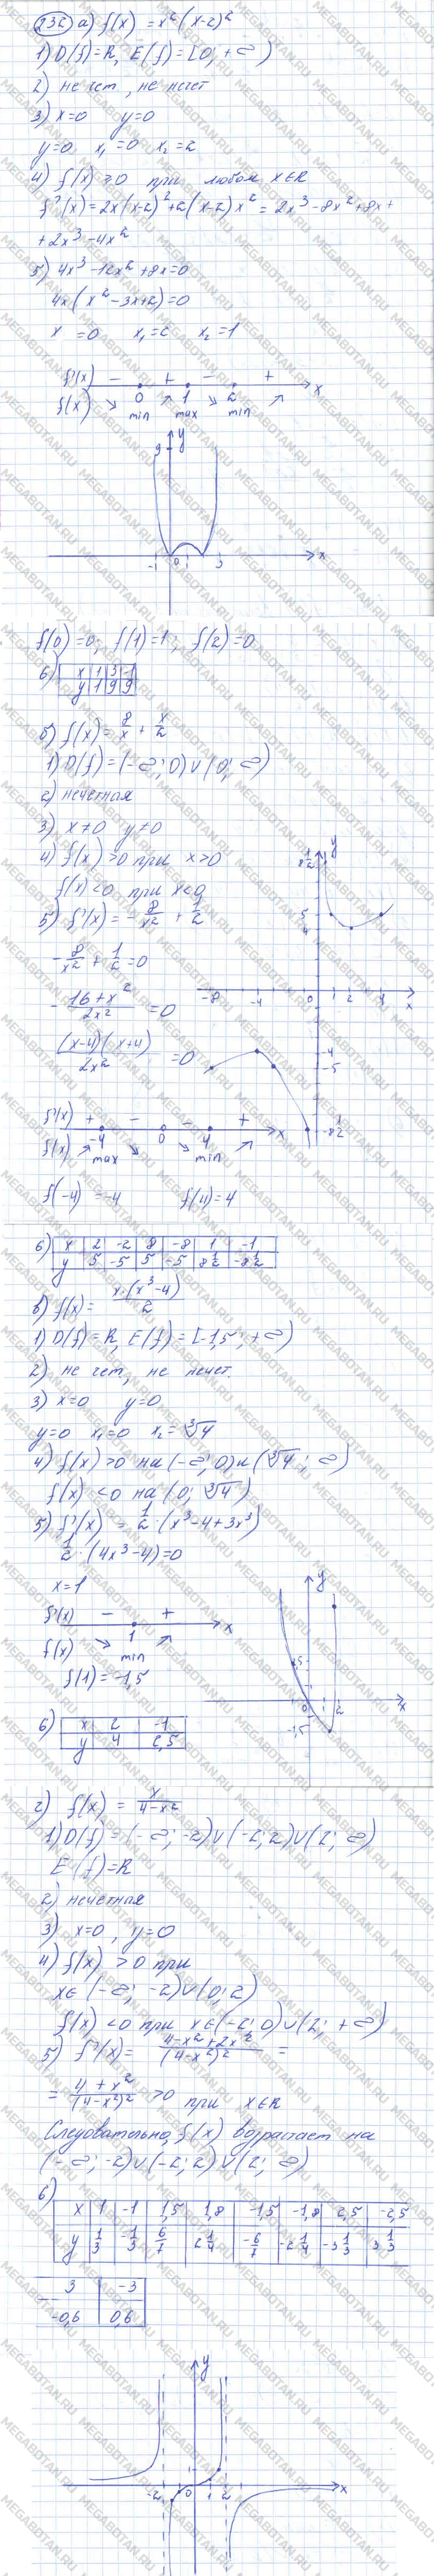 232 а) f(x) = x²(x-2)²
1) D(f)=R, E(f)=[0; +∞)
2) не чет, не нечет
3) x=0 y=0
y=0 x₁=0 x₂=2
4) f(x) ≥0 при любом x∈R
f'(x)=2x(x-2)²+2(x-2)x² = 2x³-8x²+8x+
+2x³-4x²
5) 4x³-12x²+8x=0
4x(x²-3x+2)=0
x =0 x₁=2 x₂=1
f'(x) - + - +
0 1 2 x
f(x) ↘ min ↗ max ↘ min ↗
y
9
-1 0 1 3 x
f(0)=0; f(1)=1; f(2)=0
6) x 1 3 -1
y 1 9 9
б) f(x)= 8/x + x/2
1) D(f)=(-∞; 0)∪(0; ∞)
2) нечетная
3) x≠0 y≠0
4) f(x)>0 при x>0
f(x)<0 при x<0
5) f'(x)= -8/x² + 1/2
-8/x² + 1/2 =0
-16+x²/2x² =0
(x-4)(x+4)/2x² =0
y
8 1/2
5
4
-8 -4 0 1 2 4 x
-4
-5
-8 1/2
f'(x) + - - +
-4 0 4 x
f(x) ↗ max ↘ ↘ min ↗
f(-4) =-4 f(4)=4
6) x 2 -2 8 -8 1 -1
y 5 -5 5 -5 8 1/2 -8 1/2
в) f(x)= x·(x³-4)/2
1) D(f)=R, E(f)=[-1,5; +∞)
2) не чет, не нечет.
3) x=0 y=0
y=0 x₁=0 x₂=∛4
4) f(x)>0 на (-∞; 0) и (∛4; ∞)
f(x) <0 на (0; ∛4)
5) f'(x) = 1/2·(x³-4+3x³)
1/2·(4x³-4)=0
x=1
f'(x) - +
1 x
f(x) ↘ min ↗
f(1)=-1,5
y
0 1 2 x
-1,5
6) x 2 -1
y 4 2,5
г) f(x) = x/4-x²
1) D(f)=(-∞; -2)∪(-2; 2)∪(2; ∞)
E(f)=R
2) нечетная
3) x=0, y=0
4) f(x) >0 при
x∈(-∞; -2)∪(0; 2)
f(x) <0 при x∈(-2; 0)∪(2; +∞)
5) f'(x)= 4-x²+2x²/(4-x²)² =
= 4+x²/(4-x²)² >0 при x∈R
Следовательно, f(x) возрастает на
(-∞; -2)∪(-2; 2)∪(2; ∞)
6)
x 1 -1 1,5 1,8 -1,5 -1,8 2,5 -2,5
y 1/3 -1/3 6/7 2 1/4 -6/7 -2 1/4 -3 1/3 3 1/3
3 -3
-0,6 0,6
y
1
-2 0 1 2 x
MEGABOTAN.RU